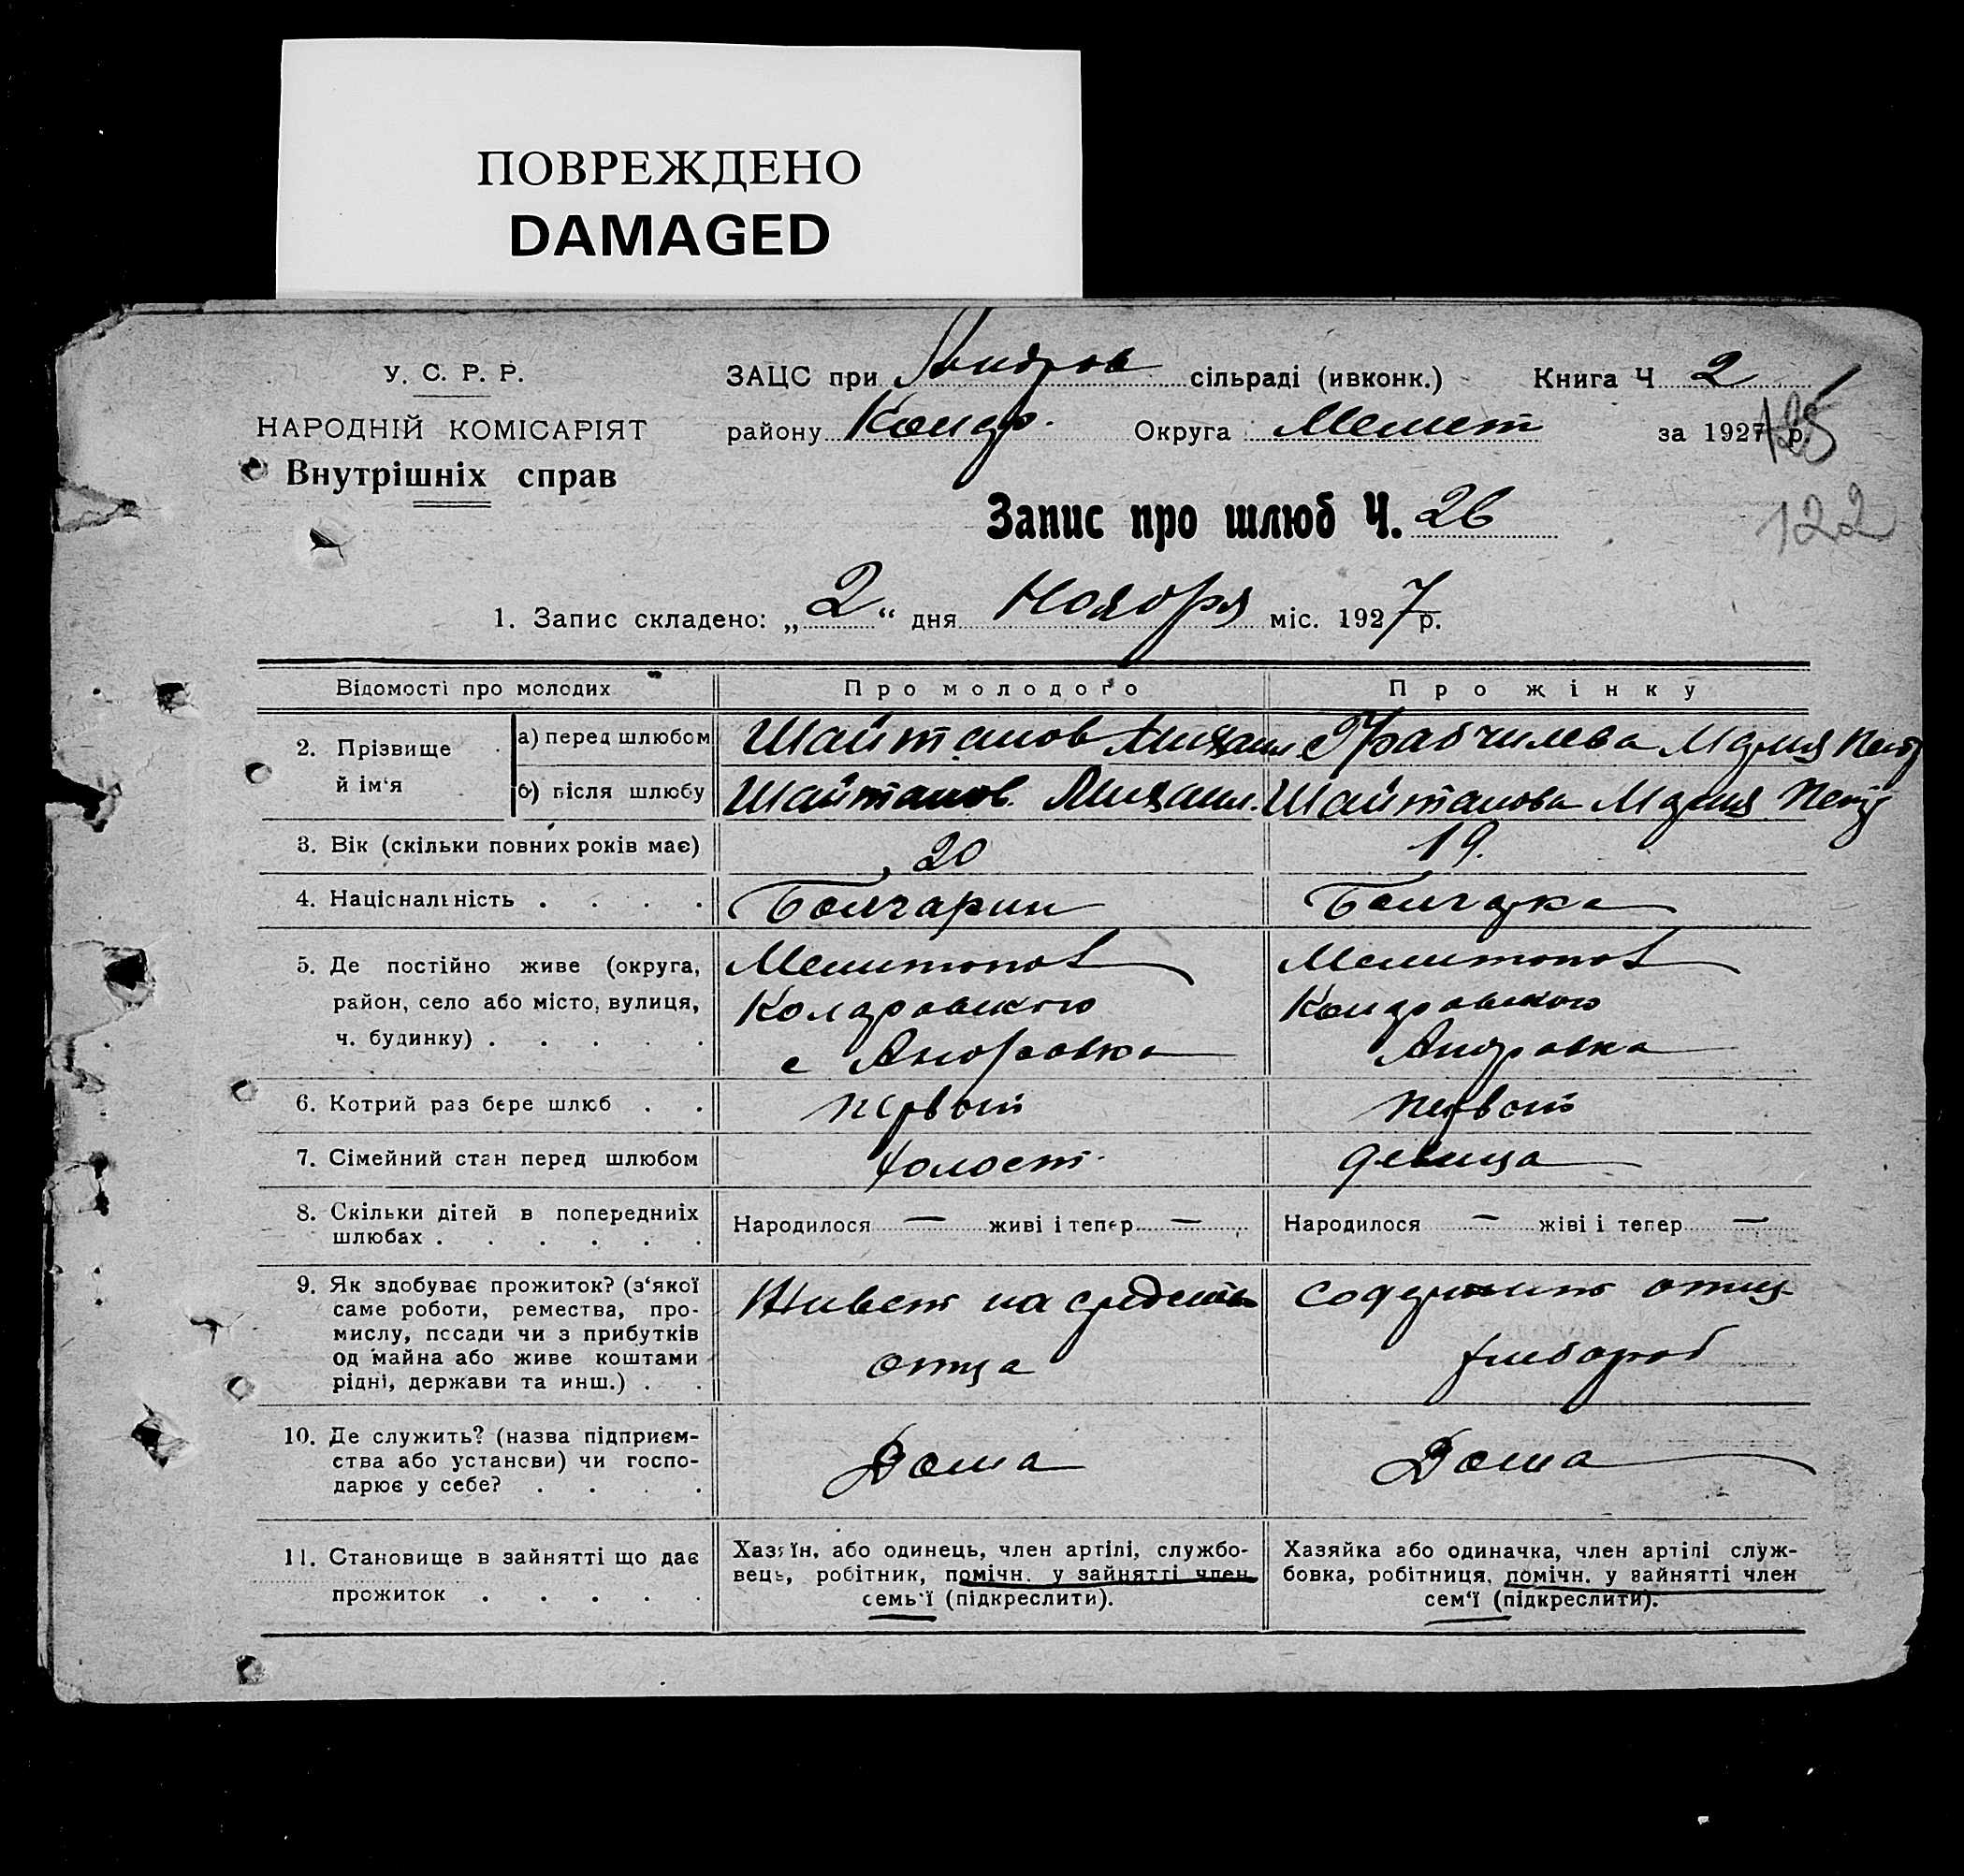 ПОВРЕЖДЕНО
DAMAGED
У. С. Р. Р.
НАРОДНІЙ КОМІСАРІЯТ
Внутрішніх справ
ЗАЦС при Андров сільраді (ивконк.) Книга Ч 2
району Колар. Округа Мелит за 1927 р.
125
122
Запис про шлюб Ч. 26
1. Запис складено: „2“ дня Ноября міс. 1927 р.
Відомості про молодих Про молодого Про жінку
2. Прізвище й ім‘я
а) перед шлюбом Шайтанов Михаил Мария Петр
б) після шлюбу Шайтанов Михаил. Шайтанова Мария Петр
3. Вік (скільки повних років має) 20 19.
4. Національність . . . . Болгарин Болгарка
5. Де постійно живе (округа, район, село або місто, вулиця, ч. будинку) . . . . .
Мелитопол
Коларовского
с Андровка
Мелитопол
Коларовского
Андровка
6. Котрий раз бере шлюб . . первый первый
7. Сімейний стан перед шлюбом холост. девица
8. Скільки дітей в попередніх шлюбах . . . . . .
Народилося — живі і тепер —
Народилося — жіві і тепер —
9. Як здобуває прожиток? (з‘якої
саме роботи, ремества, про-
мислу, посади чи з прибутків
од майна або живе коштами
рідні, держави та инш.) . .
Живет на средства
отца
содержит отец
хлебороб
10. Де служить? (назва підприєм-
ства або установи) чи госпо-
дарює у себе? . . . .
Дома
Дома
11. Становище в зайнятті що дає
прожиток . . . . .
Хазяїн, або одинець, член артілі, службо-
вець, робітник, помічн. у зайнятті член
семь‘ї (підкреслити).
Хазяйка або одиначка, член артілі служ-
бовка, робітниця, помічн. у зайнятті член
сем‘ї (підкреслити).